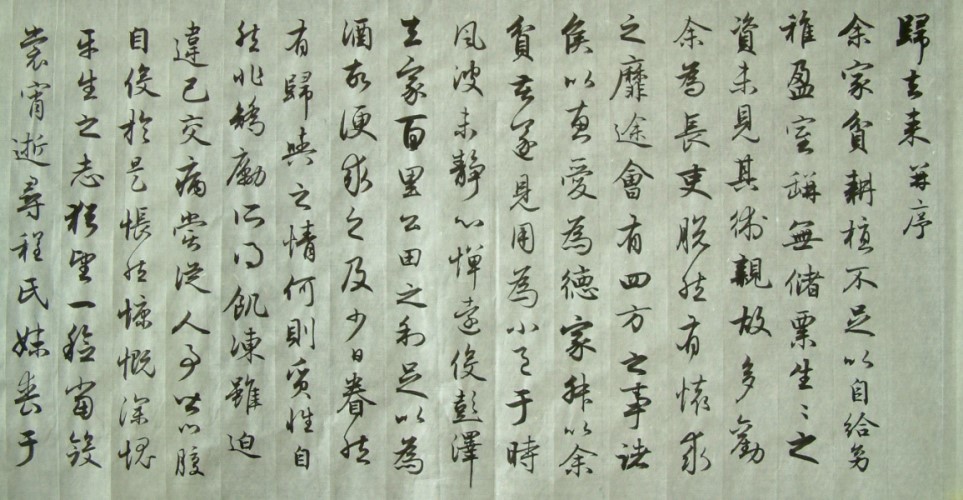 歸去来並序
余家貧耕植不足以自給幼
稚盈室缾無儲粟生〻之
資未見其術親故多勸
余為長吏脫然有懷求
之靡途會有四方之事諸
侯以惠愛為德家叔以余
貧苦遂見用為小邑于時
風波未靜心憚遠役彭澤
去家百里公田之利足以為
酒故便求之及少日眷然
有歸與之情何則質性自
然非矯勵所得飢凍雖迫
違己交病嘗從人事皆口腹
自役於是悵然慷慨深愧
平生之志猶望一稔當斂
裳宵逝尋程氏妹喪于